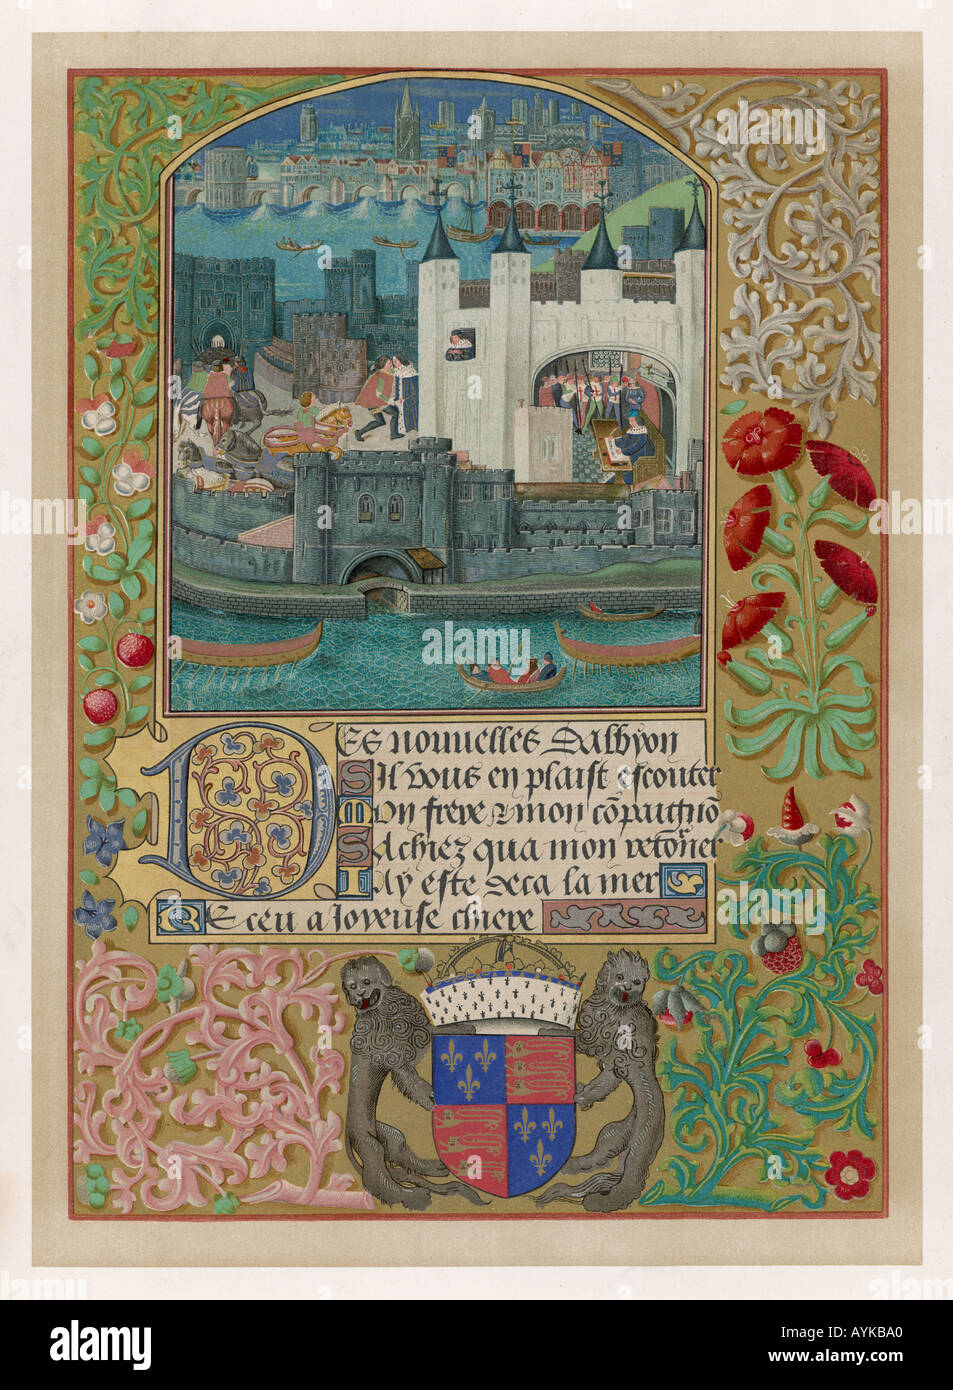 DES nouuelles dalbyon
Sil vous en plaist escouter
Mon frere & mon cõpaignõ
Sachiez qua mon retoner
Iay este deca la mer
Receu a Joyeuse chiere
alamy
alamy
Image ID: AYKBA0
www.alamy.com